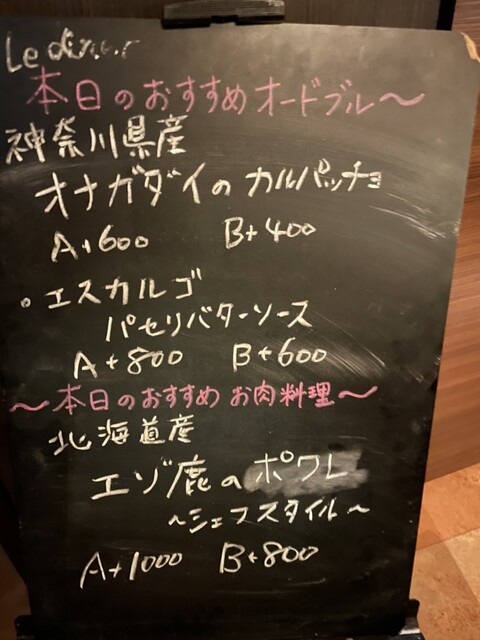 Le dîner
本日のおすすめオードブル〜
神奈川県産
オナガダイのカルパッチョ
A+600 B+400
・エスカルゴ
パセリバターソース
A+800 B+600
〜本日のおすすめ お肉料理〜
北海道産
エゾ鹿のポワレ
〜シェフスタイル〜
A+1000 B+800